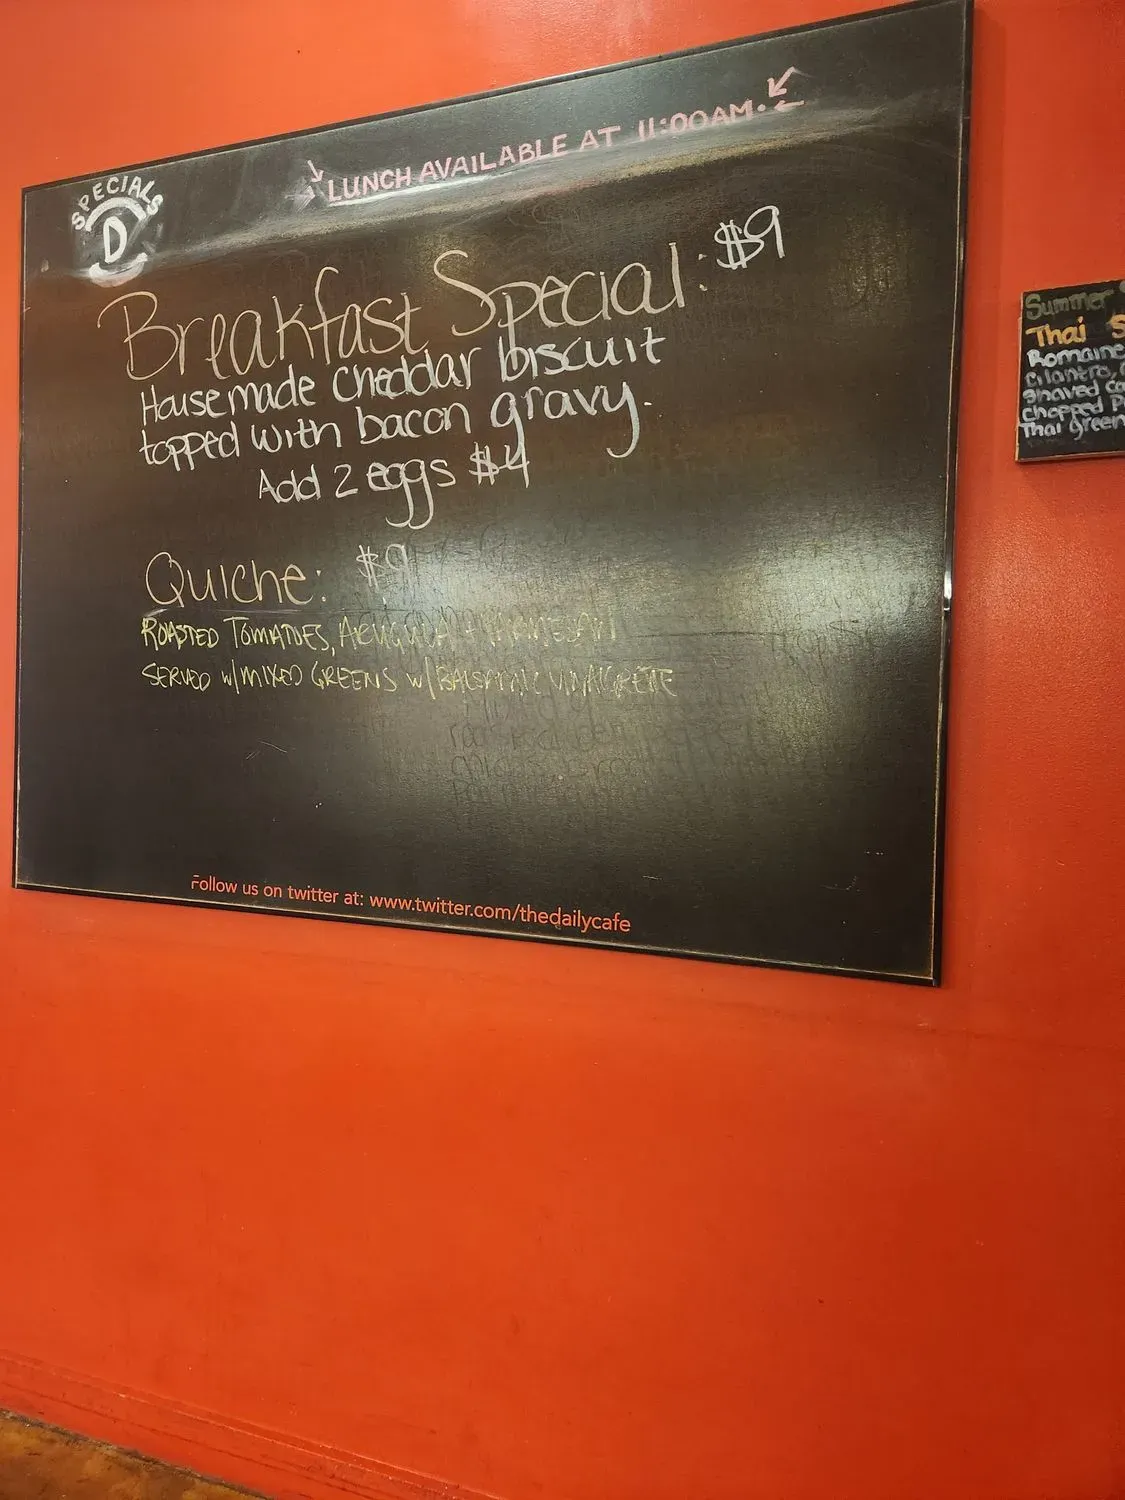 SPECIALS
D
LUNCH AVAILABLE AT 11:00AM.
Breakfast Special: $9
Housemade cheddar biscuit
topped with bacon gravy.
Add 2 eggs $4
Quiche: $9
ROASTED TOMATOES, ARUGULA + PARMESAN
SERVED W/MIXED GREENS W/BALSAMIC VINAIGRETTE
Follow us on twitter at: www.twitter.com/thedailycafe
Summer
Thai
Romaine
cilantro,
shaved
chopped
Thai green